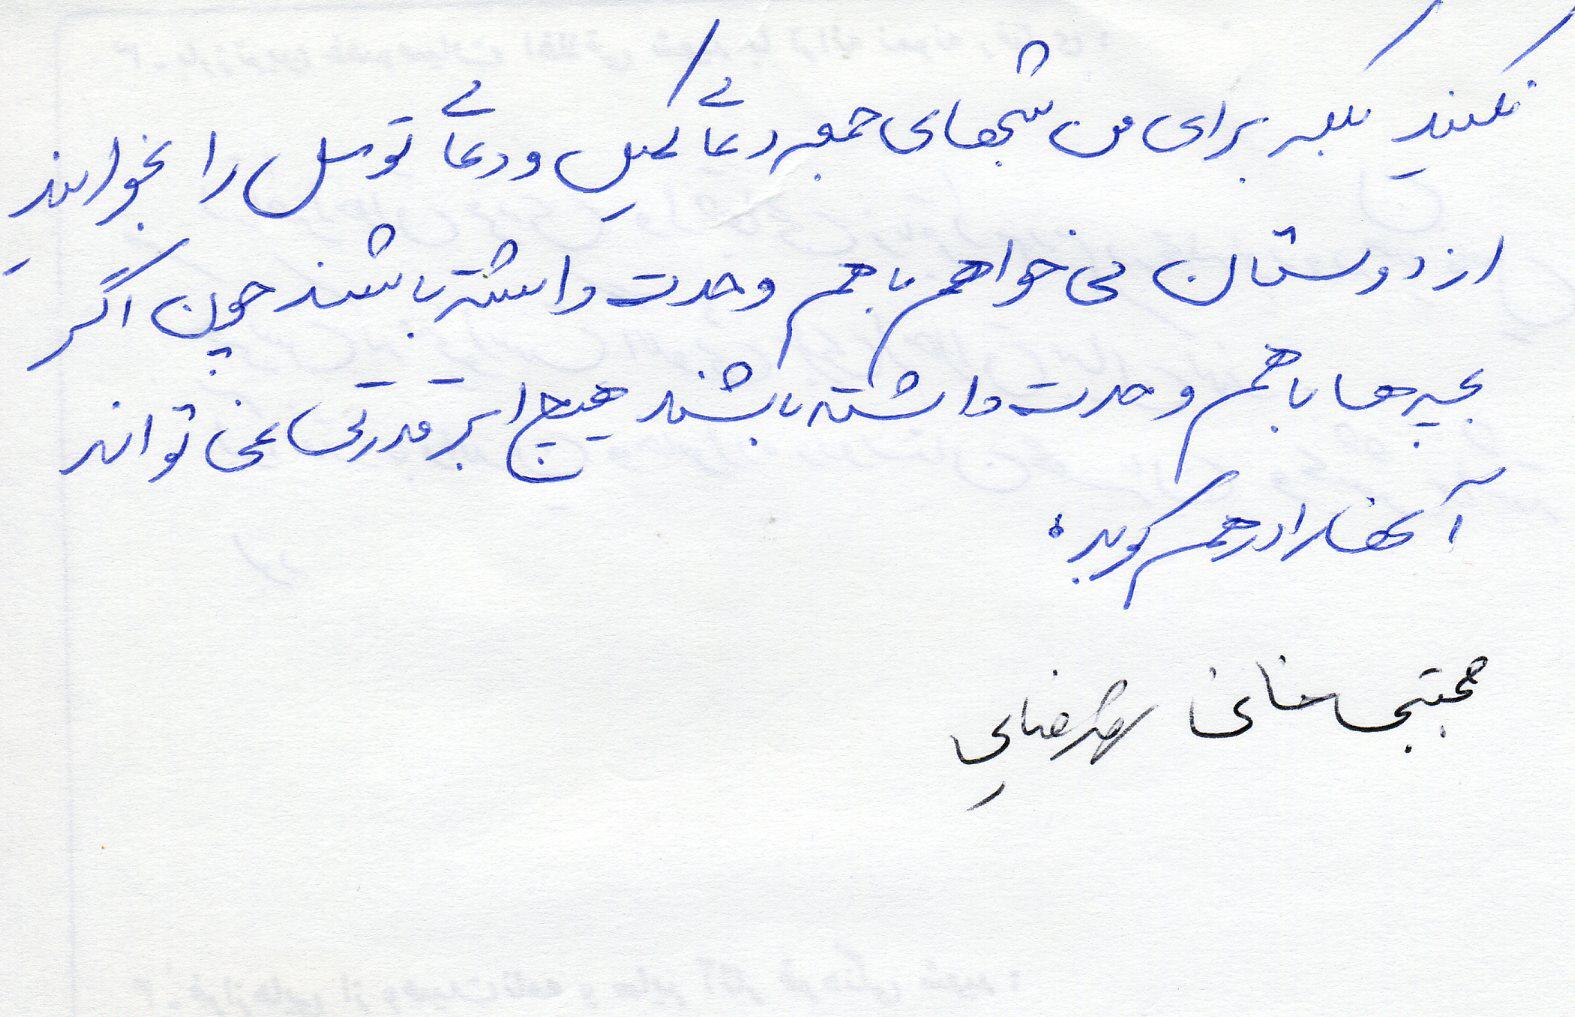 نکنید بلکه برای من شبهای جمعه دعای کمیل و دعای توسل را بخوانید
از دوستان می خواهم با هم وحدت داشته باشند چون اگر
بچه ها با هم وحدت داشته باشند هیچ ابر قدرتی نمی تواند
آنها را در هم کوبد.
مجتبی خانی